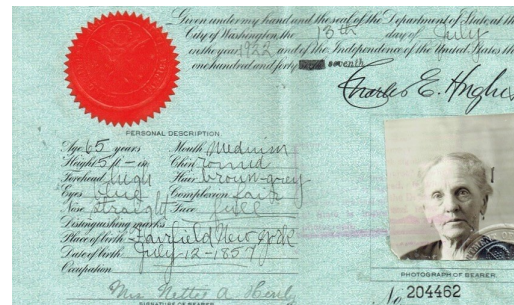 Given under my hand and the seal of the Department of State at the
City of Washington, the 13th day of July
in the year 1922 and of the Independence of the United States the
one hundred and forty seventh.
Charles E. Hughes
PERSONAL DESCRIPTION.
Age 65 years Mouth Medium
Height 5 ft — in Chin round
Forehead high Hair brown-grey
Eyes blue Complexion fair
Nose straight Face full
Distinguishing marks
Place of birth Fairfield New York
Date of birth July-12-1857
Occupation
Mrs. Nettie A.
SIGNATURE OF BEARER.
PHOTOGRAPH OF BEARER.
No 204462